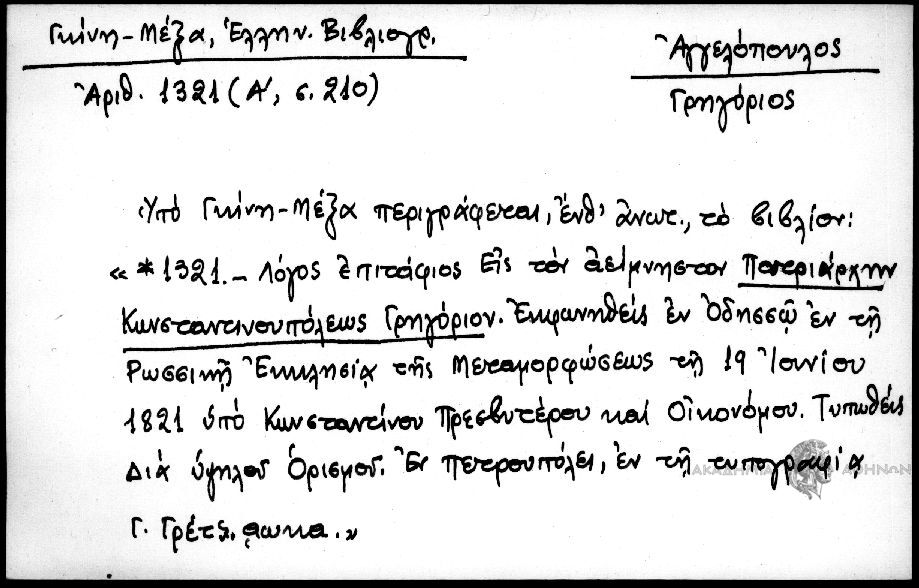 Γκίνη-Μέξα, Ἑλλην. Βιβλιογρ.
Ἀριθ. 1321 (Α΄, σ. 210)
Ἀγγελόπουλος
Γρηγόριος
Ὑπό Γκίνη-Μέξα περιγράφεται, ἔνθ' ἀνωτ., τὸ βιβλίον:
« *1321.- Λόγος ἐπιτάφιος Εἰς τὸν ἀείμνηστον Πατριάρχην
Κωνσταντινουπόλεως Γρηγόριον. Ἐκφωνηθείς ἐν Ὀδησσῷ ἐν τῇ
Ρωσσικῇ Ἐκκλησίᾳ τῆς Μεταμορφώσεως τῇ 19 Ἰουνίου
1821 ὑπό Κωνσταντίνου Πρεσβυτέρου καί Οἰκονόμου. Τυπωθείς
Διά ὑψηλοῦ Ὁρισμοῦ. Ἐν Πετρουπόλει, ἐν τῇ τυπογραφίᾳ
Γ. Γρέτς. ͵αωκα. »
ΑΚΑΔΗΜΙΑ ΑΘΗΝΩΝ